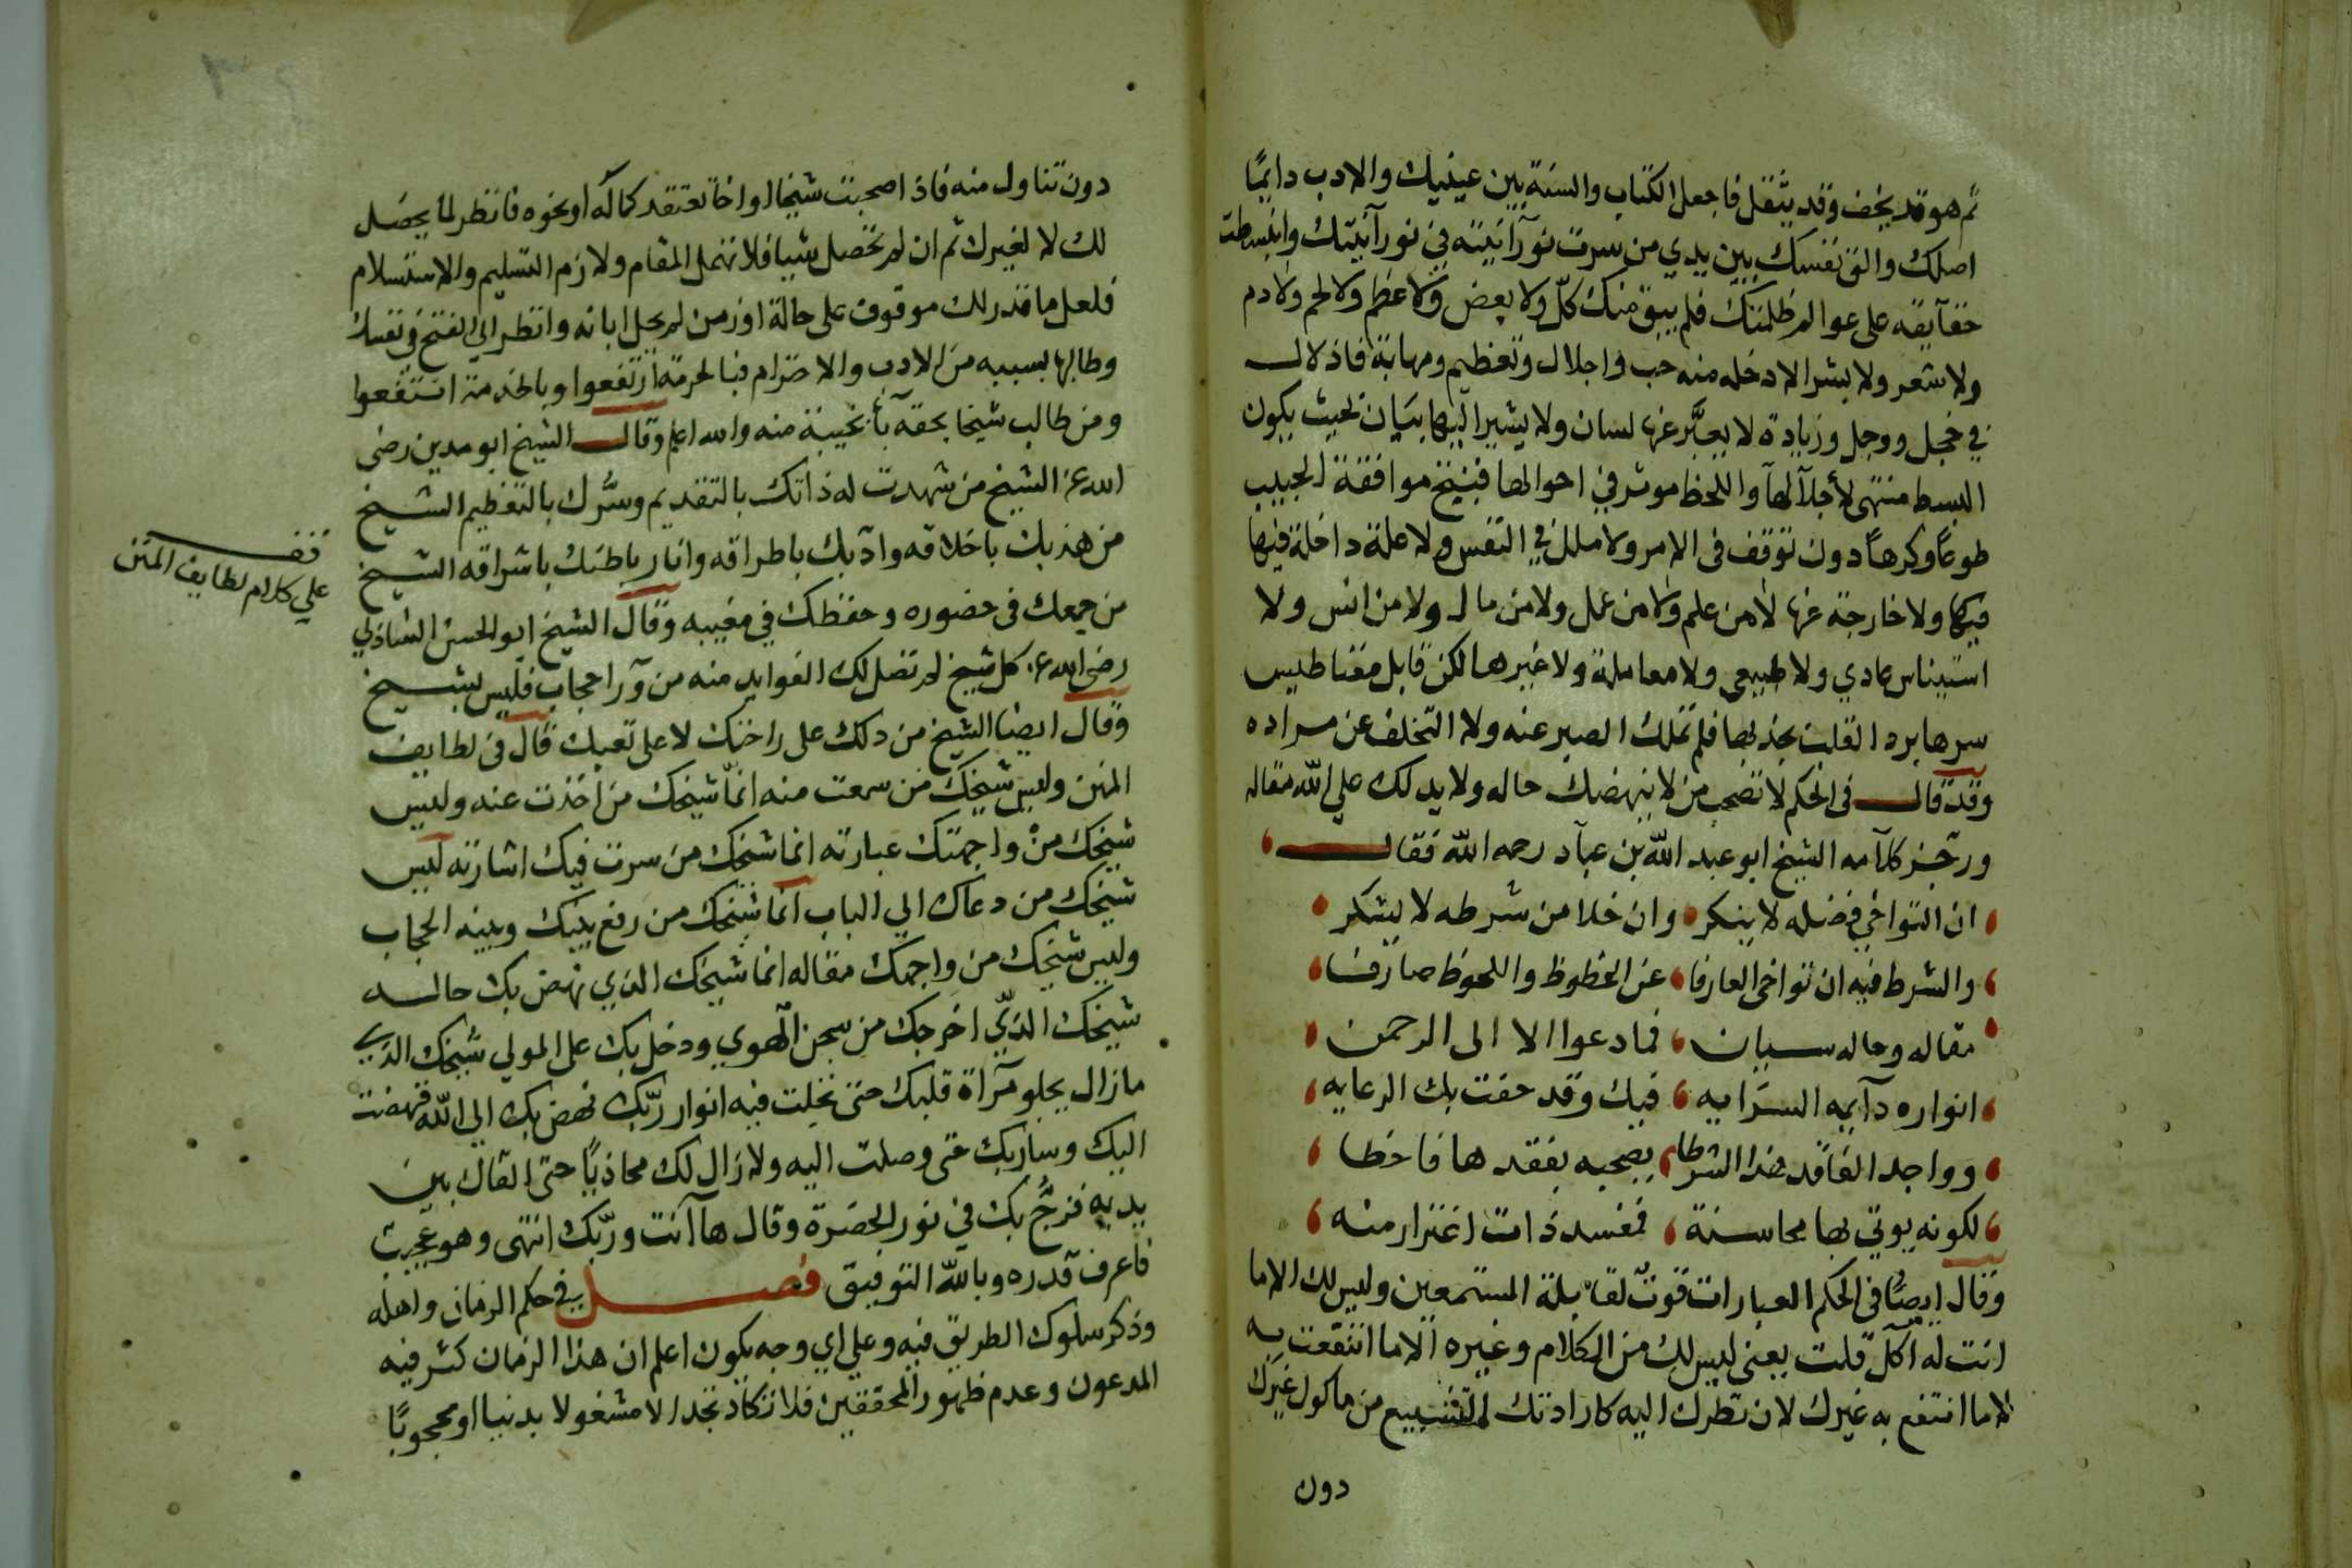 ثم هو قد يخف وقد يثقل فاجعل الكتاب والسنة بين عينيك والادب دايمًا
اصلك والق نفسك بين يدي من سرت نورآنيته في نورآنيتك وانبسطت
حقآيقه على عوالم ظلمتك فلم يبق منك كلّ ولا بعض ولا عظم ولا لحم ولا دم
ولا شعر ولا بشر الا دخله منه حب واجلال وتعظيم ومهابة فاذ لال
في خجل ووجل وزيادة لا يعبَّر عنها لسان ولا يشير اليها بيان بحيث يكون
البسط منتهى لأجلآلها واللحظ موثر في احوالها فينتج موافقة الحبيب
طوعاً وكرهاً دون توقف في الامر ولا ملل في النفس ولا علة داخلة فيها
فيكما ولا خارجة عنها لا من علم ولا من عمل ولا من مال ولا من انس ولا
استيناس عادي ولا طبيعي ولا معاملة ولا غيرها لكن قابل مغناطيس
سرها برد القلب بجذبها فلم تملك الصبر عنه ولا التخلف عن مراده
وقد قال في الحكم لا تصحب من لا ينهضك حاله ولا يدلك علي الله مقاله
ورجز كلآمه الشيخ ابو عبد الله بن عبآد رحمه الله فقال
ان التواخي فضله لا ينكر وان خلا من شرطه لا يشكر
والشرط فيه ان تواخي العارفا عن الحظوظ واللحوظ صارفا
مقاله وحاله سيان فما دعوا الا الى الرحمن
انواره دآيمه السرايه فيك وقد حفت بك الرعايه
وواجد الفاقد هذا الشرطا بصحبه بفقدها فاخطا
لكونه يوتي بها محاسنة فمفسد ذات اغترار منه
وقال ايضًا في الحكم العبارات قوتٌ لقابلة المستمعين وليس لك الا ما
انت له آكل قلت يعني ليس لك من الكلام وغيره الا ما انتفعت به
لا ما انتفع به غيرك لان نظرك اليه كارادتك التشبيع من ماكول غيرك
دون
دون تناول منه فاذا صحبت شيخا او اخا تعتقد كماله او نحوه فانظر لما يحصل
لك لا لغيرك ثم ان لم تحصل شيا فلا تهمل المقام ولازم التسليم والاستسلام
فلعل ما قدر لك موقوف على حالة او زمن لم يحل ابانه وانظر الي الفتح في نفسك
وطالبها بسببه من الادب والاحترام فبالحرمة ارتفعوا وبالخدمة انتفعوا
ومن طالب شيخا بحقه بآ بخيبة منه والله اعلم وقال الشيخ ابو مدين رضى
الله عنه الشيخ من شهدت له ذاتك بالتقديم وسُّرك بالتعظيم الشيخ
من هذبك باخلاقه وادّبك باطراقه وانار باطنك باشراقه الشيخ
من جمعك في حضوره وحفظك في مغيبه وقال الشيخ ابو الحسن الشاذلي
رضى الله عنه كل شيخ لم تصل لك الفوايد منه من ورآ حجاب فليس بشيخ
وقال ايضا الشيخ من دلك على راحتك لا على تعبك قال في لطايف
المنن وليس شيخك من سمعت منه انما شيخك من اخذت عنه وليس
شيخك من واجهتك عبارته انما شيخك من سرت فيك اشارته ليس
شيخك من دعاك الي الباب انما شيخك من رفع بينك وبينه الحجاب
وليس شيخك من واجهك مقاله انما شيخك الذي نهض بك حاله
شيخك الذي اخرجك من سجن الهوي ودخل بك على المولي شيخك الذي
ما زال يجلو مرآة قلبك حتى تجلت فيه انوار ربّك نهض بك الي الله فنهضت
اليك وسار بك حتى وصلت اليه ولا زال لك محاذيًا حتى القاك بين
يديه فزجّ بك في نور الحضرة وقال ها انت وربّك انتهى وهو عجيب
فاعرف قدره وبالله التوفيق فصل في حكم الزمان واهله
وذكر سلوك الطريق فيه وعلي اي وجه يكون اعلم ان هذا الزمان كثر فيه
المدعون وعدم ظهور المحققين فلا تكاد تجد الا مشغولا بدنيا او محجوبًا
قف
علي كلام لطايف المنن